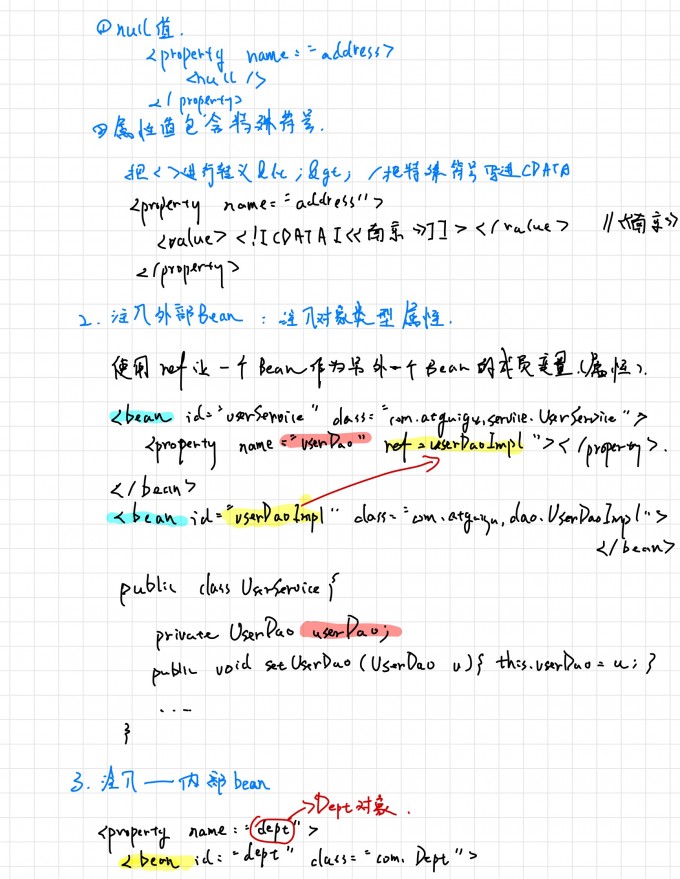 ① null值.
<property name="address>
<null />
</property>
② 属性值包含特殊符号.
把<>进行转义&lt;&gt; / 把特殊符号写进CDATA
<property name="address">
<value><![CDATA[<<南京>>]]></value> //<<南京>>
</property>
2. 注入外部Bean : 注入对象类型属性.
使用ref让一个Bean作为另外一个Bean的成员变量(属性).
<bean id="userService" class="com.atguigu.service.UserService">
<property name="userDao" ref="userDaoImpl"></property>.
</bean>
<bean id="userDaoImpl" class="com.atguigu.dao.UserDaoImpl">
</bean>
public class UserService {
private UserDao userDao;
public void setUserDao (UserDao u){ this.userDao = u; }
...
}
3. 注入——内部bean
Dept对象.
<property name="dept">
<bean id="dept" class="com.Dept">